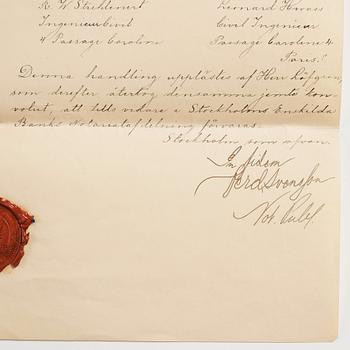 R. W. Strehlenert Leonard Hwass
Ingenieur Civil Civil Ingenieur
4 Passage Caroline Passage Caroline 4
Paris.
Denna handling upplästes af Herr Löfgren,
som derefter återtog densamma jemte kon-
volut, att tills vidare i Stockholms Enskilda
Banks Notariatafdelning förvaras.
Stockholm som ofvan.
In fidem
Svensson
Not. Publ.